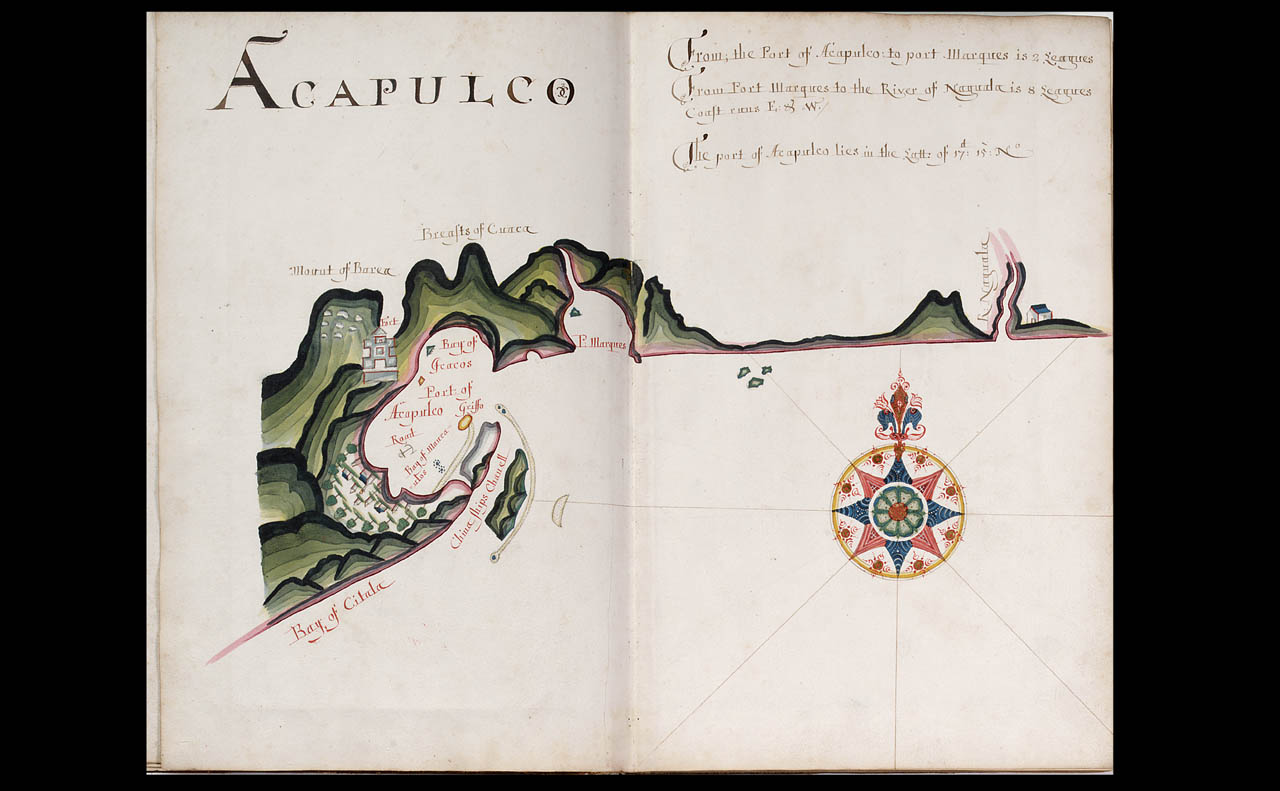 ACAPULCO
From the Port of Acapulco: to port Marques is 2 Leagues
From Port Marques to the River of Naguala is 8 Leagues
Coast runs E. & W.
The port of Acapulco lies in the Latt: of 17d: 15: No
Breasts of Cuaca
Mount of Barea
R Naguala
Fort
P. Marques
Bay of
Icacos
Port of
Acapulco
Griffo
Road
Bay of
China ships Chanell
Bay of Citala